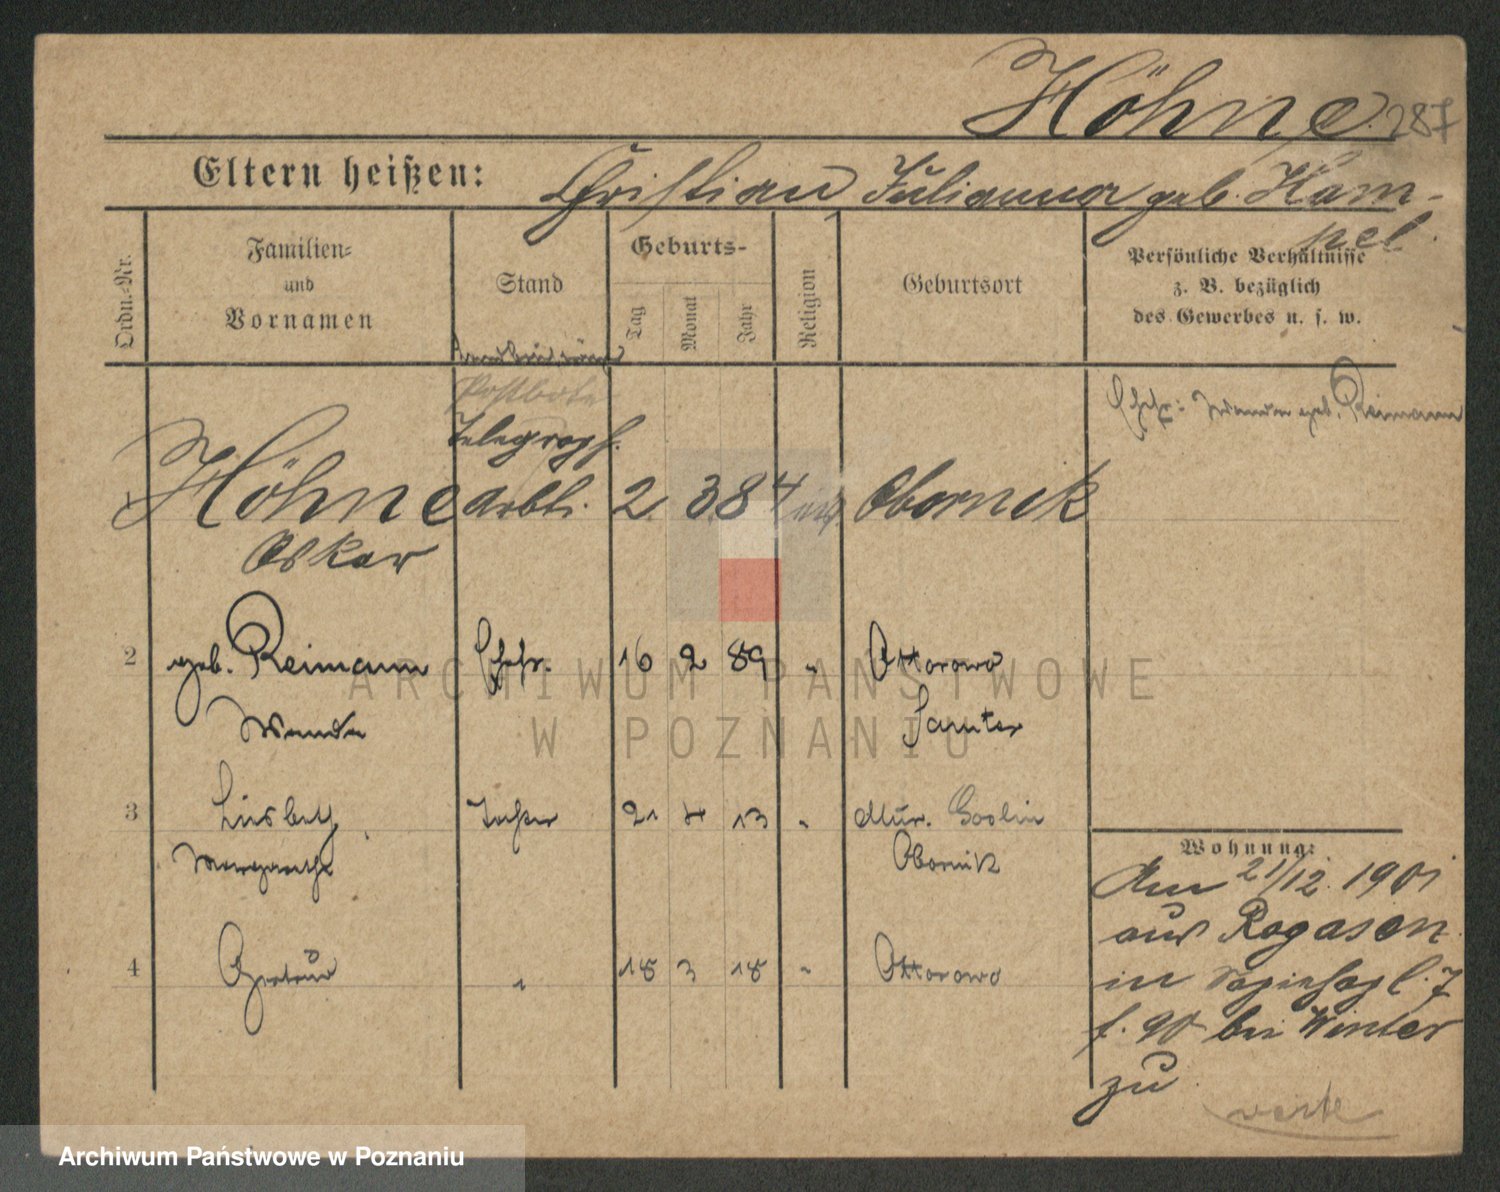 Höhne 287
Eltern heißen: Christian Julianna geb. Ham-
pel.
Ordn.-Nr.
Familien-
und
Vornamen
Stand
Geburts-
Tag
Monat
Jahr
Religion
Geburtsort
Persönliche Verhältnisse
z. B. bezüglich
des Gewerbes u. s. w.
Postbote
Telegraph.
Ehefr: Wanda geb. Reimann
1 Höhne arbtr. 2 3 84 Obornik
Oskar
2 geb. Reimann Ehefr. 16 2 89 " Ottorowo
Wanda Samter
3 Liesbeth Tochter 21 4 13 " Mur. Goslin
Margarethe Obornik
4 Gertrud " 18 3 18 " Ottorowo
Wohnung:
Am 21/12. 1901
aus Rogasen
in
f. 90 bei Winter
zu
verte
ARCHIWUM PAŃSTWOWE
W POZNANIU
Archiwum Państwowe w Poznaniu